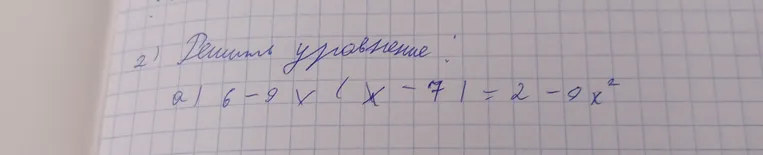 2) Решить уравнение:
а) 6 - 9x (x - 7) = 2 - 9x²